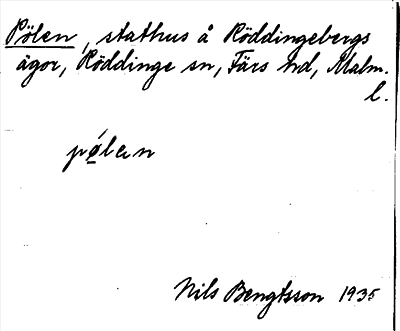 Pölen, stathus å Röddingebergs
ägor, Röddinge sn, Färs hd, Malm.
l.
pǿlen
Nils Bengtsson 1935